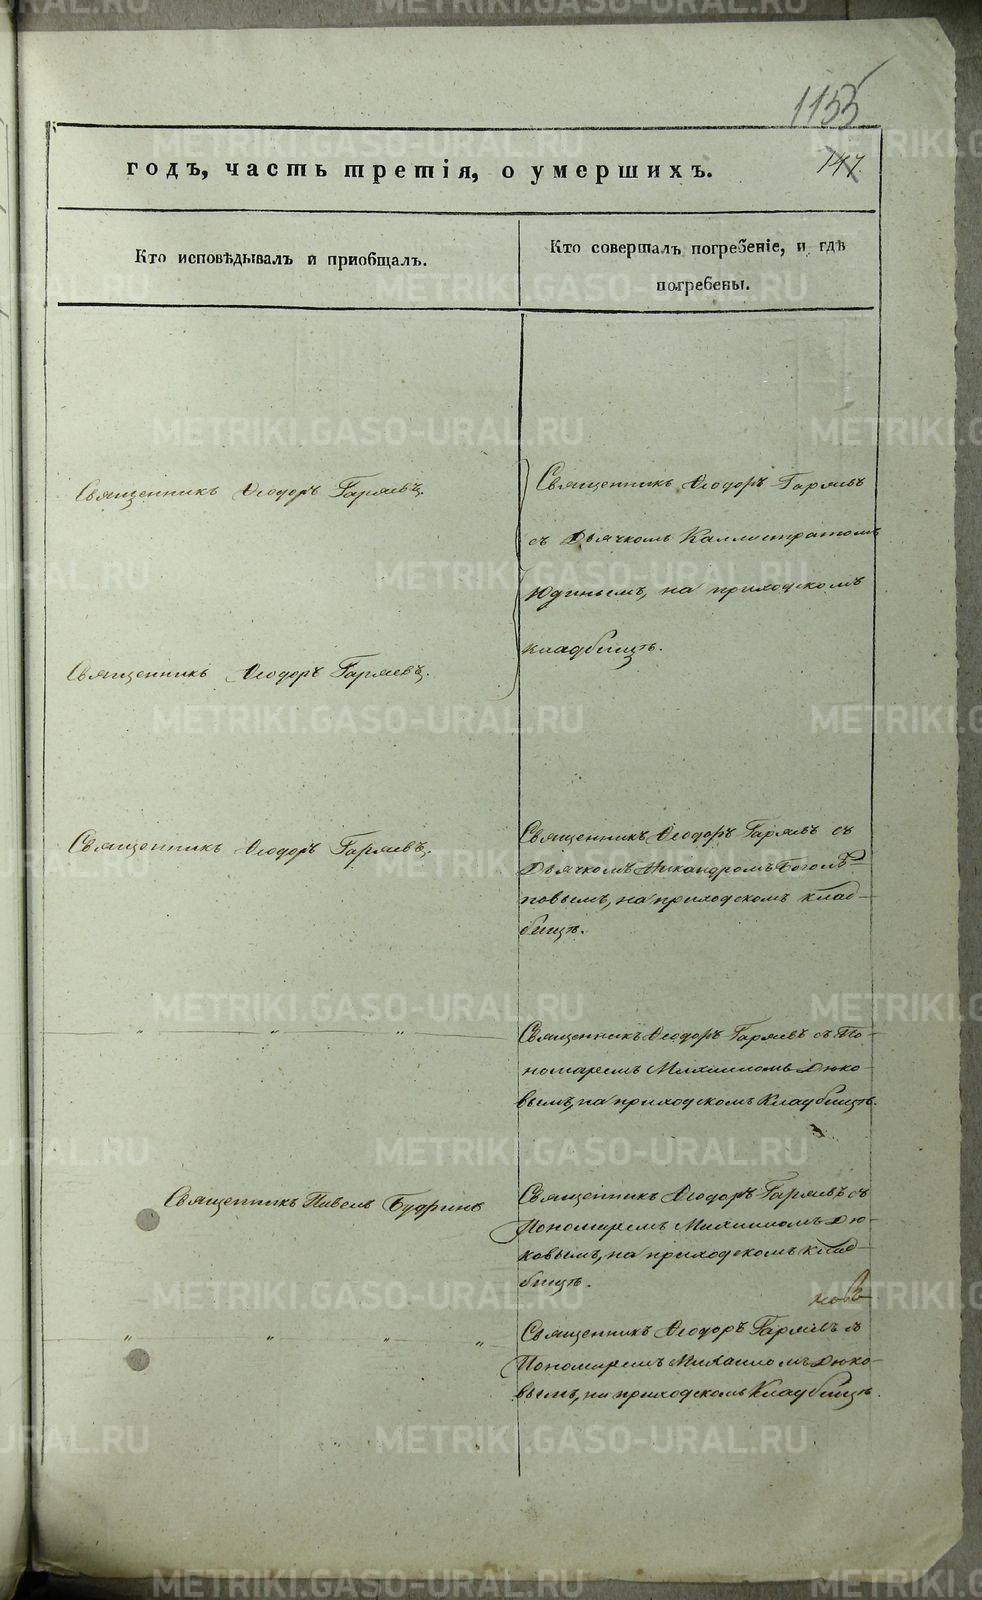 1155
147.
годъ, часть третія, о умершихъ.
Кто исповѣдывалъ и пріобщалъ.
Кто совершалъ погребеніе, и гдѣ
погребены.
Священникъ Ѳеодоръ Гаряевъ.
Священникъ Ѳеодоръ Гаряевъ
съ Дьячкомъ Каллистратомъ
Юдинымъ, на приходскомъ
кладбищѣ.
Священникъ Ѳеодоръ Гаряевъ.
Священникъ Ѳеодоръ Гаряевъ.
Священникъ Ѳеодоръ Гаряевъ съ
Дьячкомъ Никандромъ Боголѣ-
повымъ, на приходскомъ клад-
бищѣ.
Священникъ Ѳеодоръ Гаряевъ съ По-
номаремъ Михаиломъ Дюко-
вымъ, на приходскомъ Кладбищѣ.
Священникъ Павелъ Будринъ
Священникъ Ѳеодоръ Гаряевъ съ
Пономаремъ Михаиломъ Дю-
ковымъ, на приходскомъ клад-
бищѣ.
Священникъ Ѳеодоръ Гаряевъ съ
Пономаремъ Михаиломъ Дюко-
вымъ, на приходскомъ Кладбищѣ.
METRIKI.GASO-URAL.RU